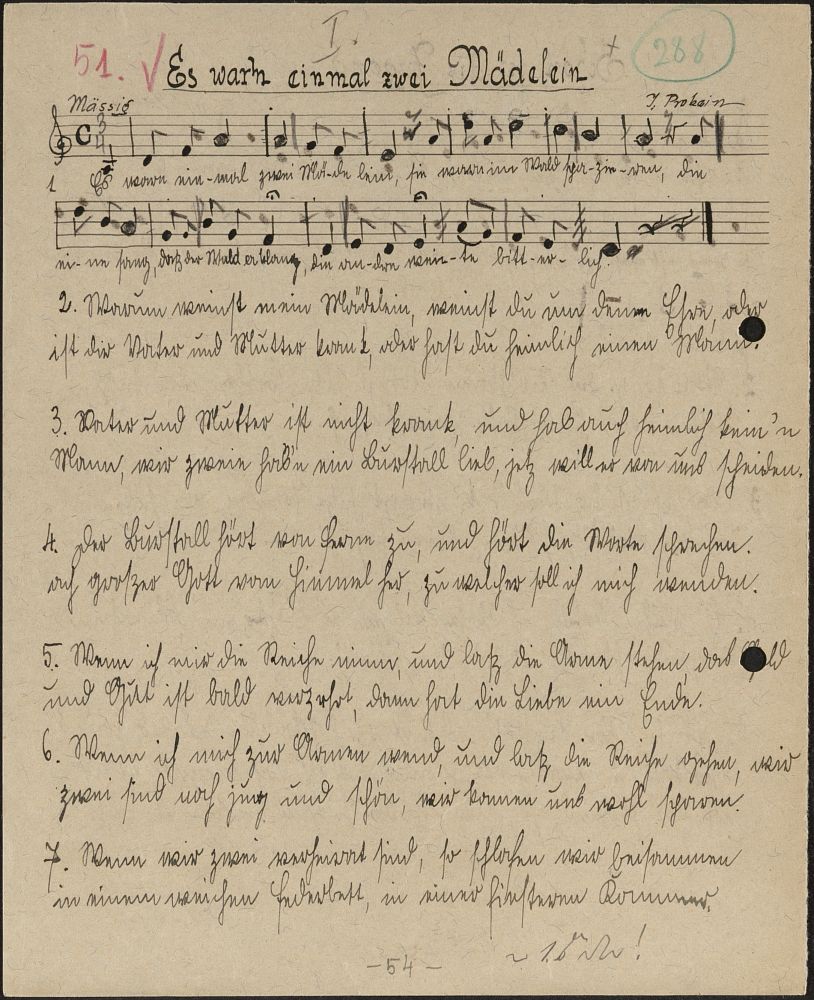 I.
51. √ Es warn einmal zwei Mädelein 288
Mässig J. Prokein
1 Es warn ein-mal zwei Mä-de lein, sie warn im Wald spa-zie-ren, die
ei-ne sang, daß der Wald erklang, die an-dre wein-te bitt-er-lich.
2. Warum weinst mein Mädelein, weinst du um deine Ehre, oder
ist dir Vater und Mutter krank, oder hast du heimlich einen Mann.
3. Vater und Mutter ist nicht krank, und hab auch heimlich kein'n
Mann, wir zweie hab'n ein Burschall lieb, jetz will er von uns scheiden.
4. Der Burschall hört von ferne zu, und hört die Worte sprechen.
ach groszer Gott vom Himmel her, zu welcher soll ich mich wenden.
5. Wenn ich mir die Reiche nimm, und laß die Arme stehen, das Geld
und Gutt ist bald verzehrt, dann hat die Liebe ein Ende.
6. Wenn ich mich zur Armen wend, und laß die Reiche gehen, wir
zwei sind noch jung und schön, wir können uns wohl sparen.
7. Wenn wir zwei verheirat sind, so schlafen wir beisammen
in einem weichen Federbett, in einer finsteren Kammer.
-54-